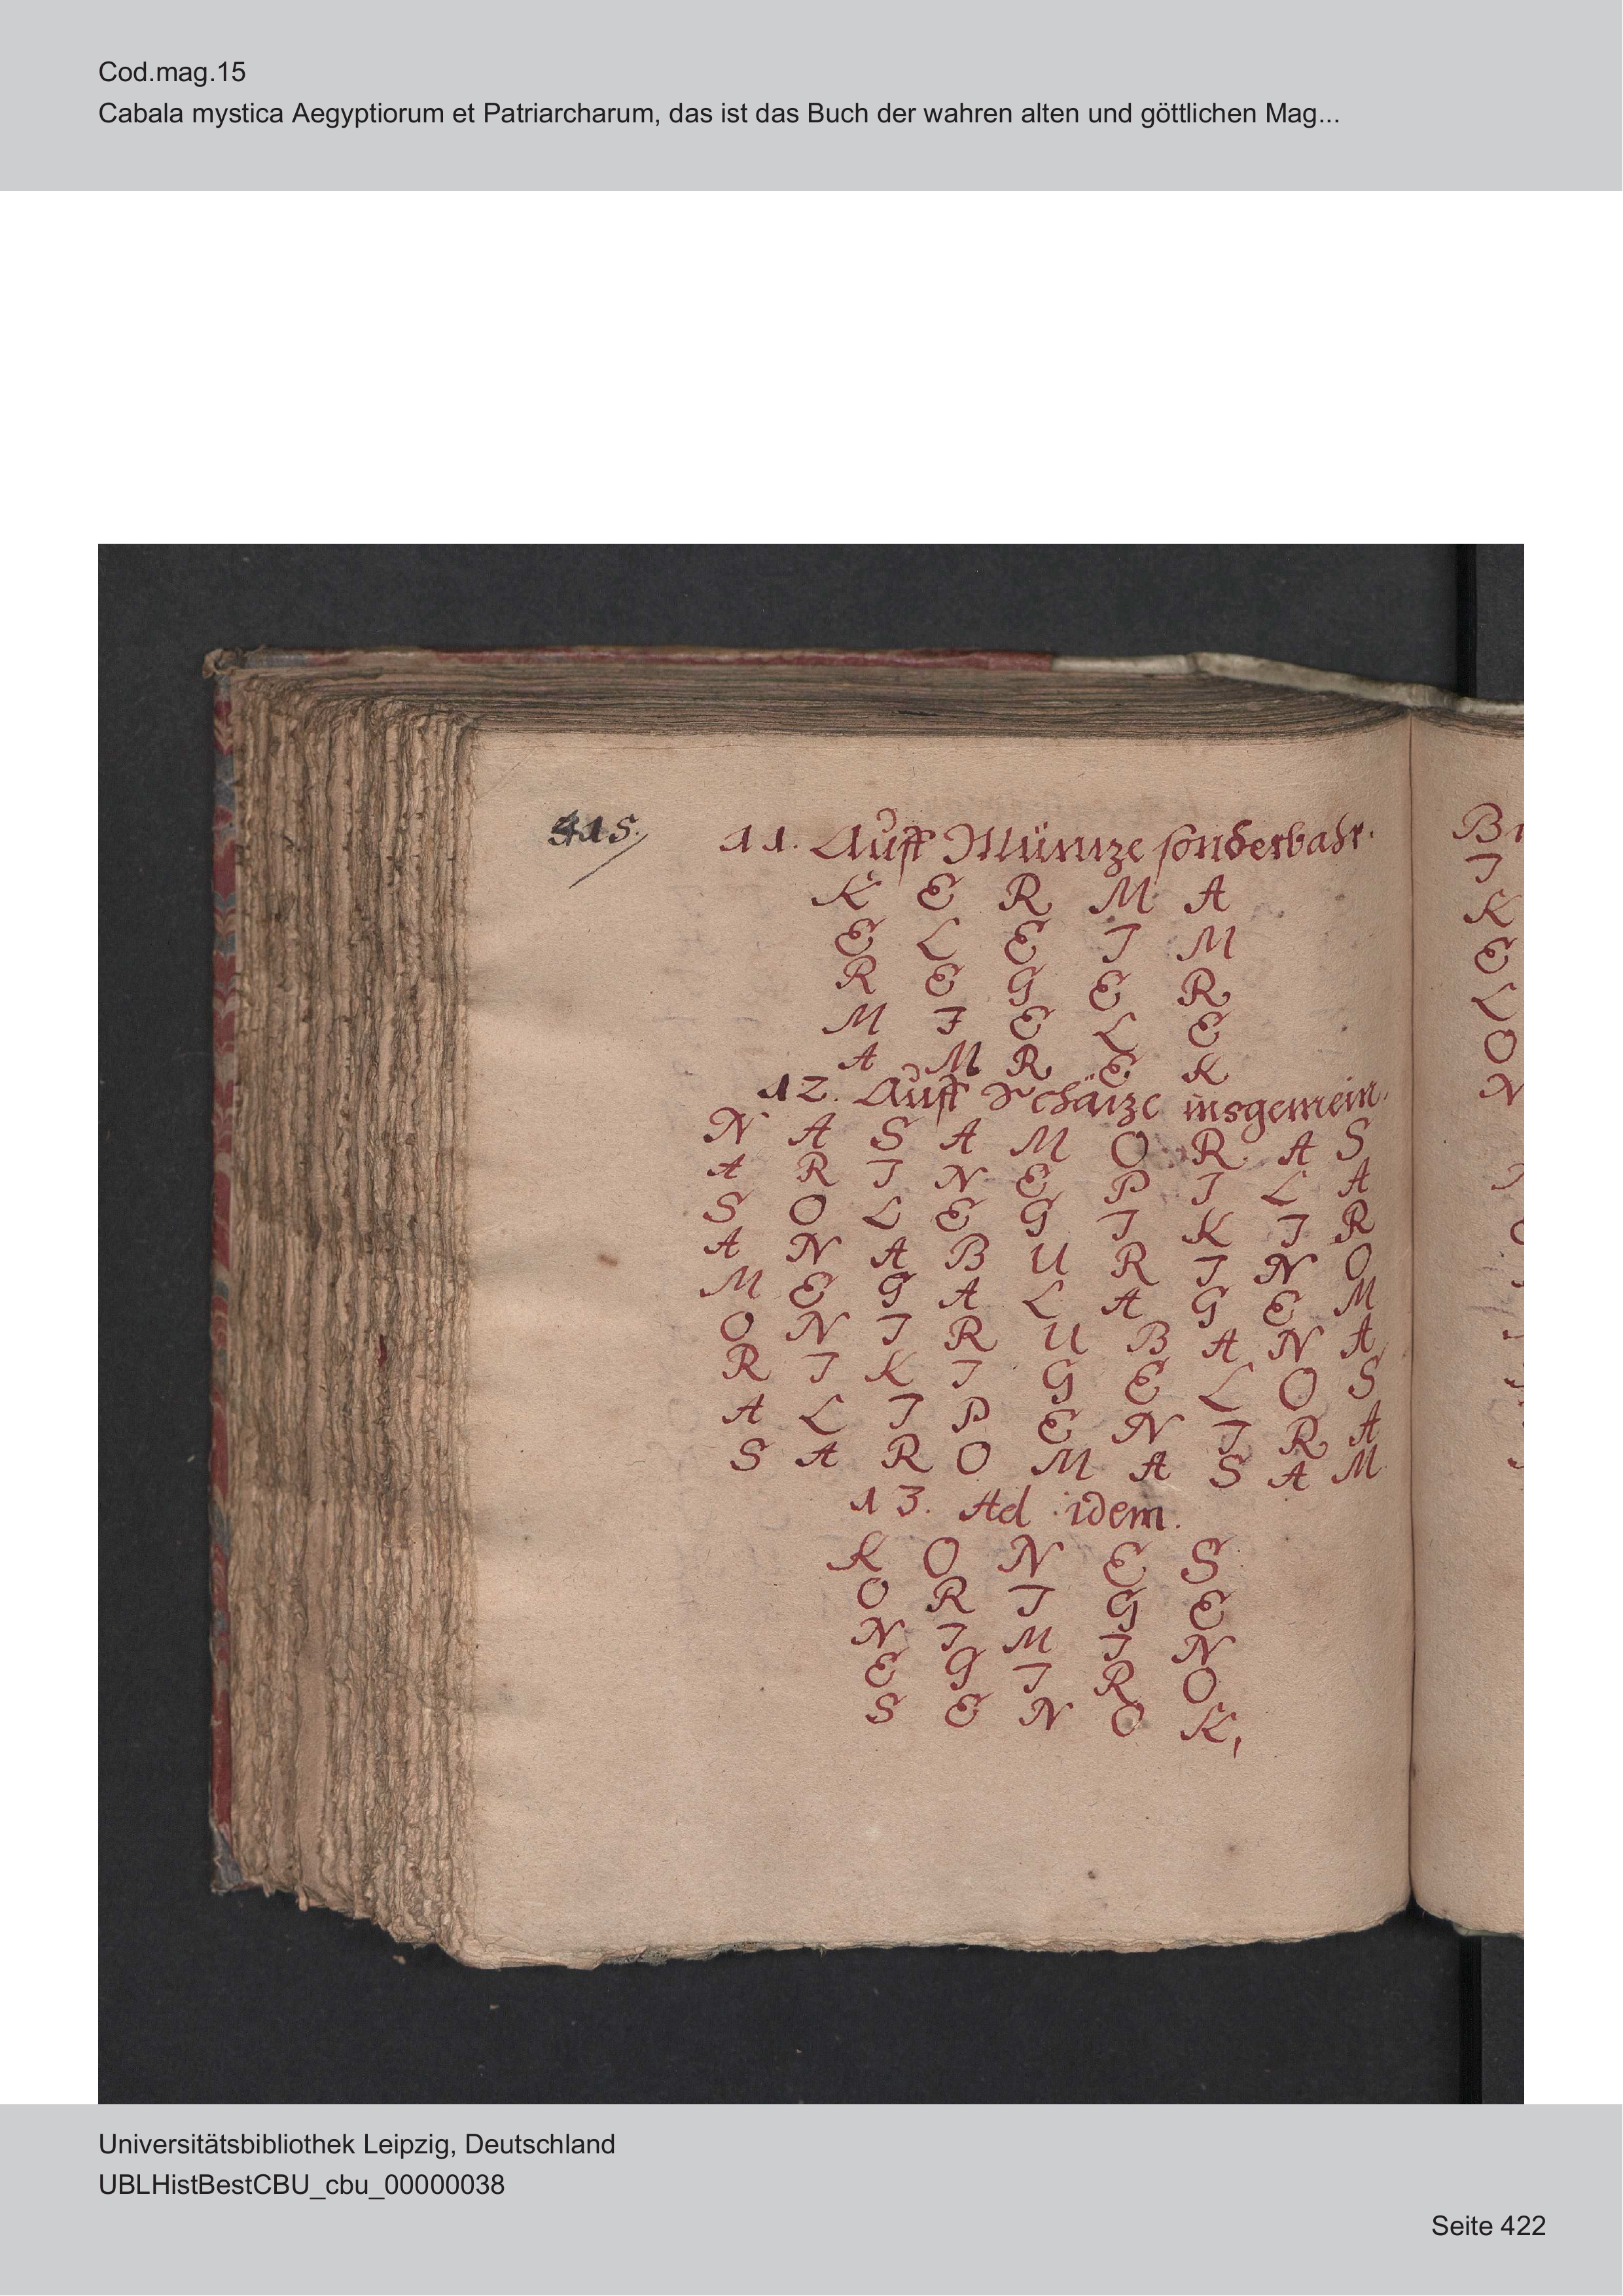 Cod.mag.15
Cabala mystica Aegyptiorum et Patriarcharum, das ist das Buch der wahren alten und göttlichen Mag...
415.
11. Auff Müntze sonderbahr.
K E R M A
E L E I M
R E G E R
M I E L E
A M R E K
12. Auff Schätze insgemein.
N A S A M O R A S
A R I N E P I L A
S O L E G I K I R
A N A B U R I N O
M E G A L A G E M
O N I R U B A N A
R I K I G E L O S
A L I P E N I R A
S A R O M A S A M
13. Ad idem.
K O N E S
O R I G E
N I M I N
E G I R O
S E N O K,
I
K
E
L
O
N
Universitätsbibliothek Leipzig, Deutschland
UBLHistBestCBU_cbu_00000038
Seite 422